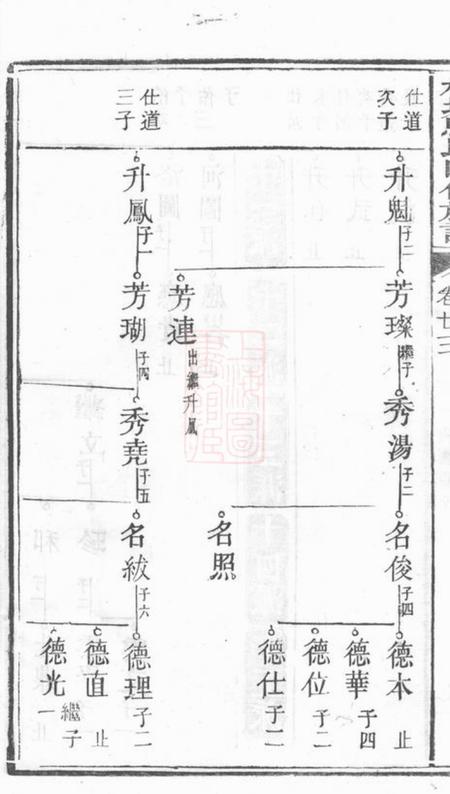 卷廿三
仕道
次子
升魁 子二
芳璨 繼子
秀湯 子二
名俊 子四
德本 止
德華 子四
德位 子二
德仕 子二
名照
芳連 出繼升鳳
仕道
三子
升鳳 子一
芳瑚 子四
秀堯 子五
名紱 子六
德理 子二
德直 止
德光 繼子一